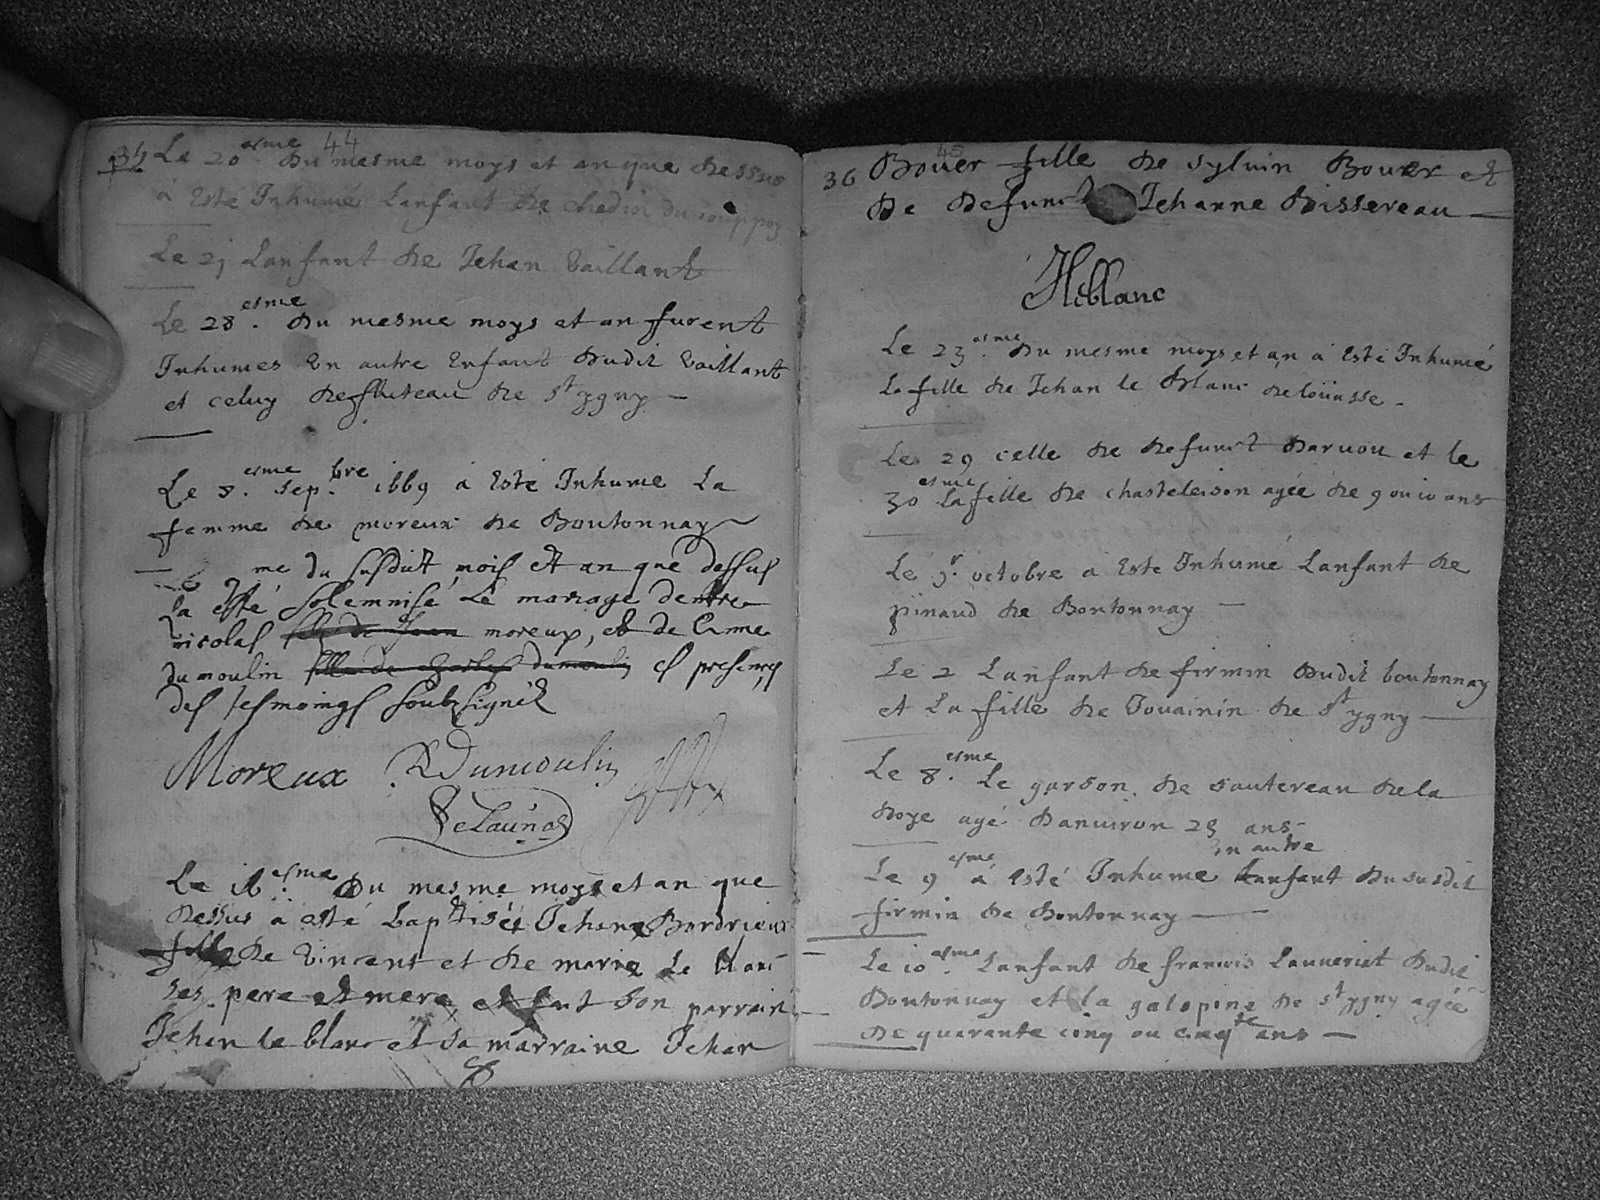 44
Le 20.esme Du mesme moys et an que Dessus
à Esté Inhumé Lanfant De chedin du
Le 21 Lanfant De Jehan Vaillant
Le 28.esme Du mesme moys et an furent
Inhumes Un autre Enfant Dudit Vaillant
et celuy De fluteau De St ygny
Le 8.esme Sep.bre 1669 à Esté Inhume La
femme De moreux De Boutonnay
me du susdit mois et an que dessus
la esté solemnisé Le mariage dentre
nicolas fils de Jean moreux, et de Anne
dumoulin fille de Charles dumoulin es presences
des tesmoings soubsignés
Moreux RDumoulin
Delaunay
Le 16.esme Du mesme moys et an que
Dessus à esté baptisée Jehane Bordrieux
fille De Vincent et De marie Le blanc
ses pere et mere et fut son parrain
Jehan Le blanc et sa marraine Jehan
45
36 Bouer fille De Sylvin Bouer et
De Defunct Jehanne Bissereau
HLeblanc
Le 23.esme Du mesme moys et an à Esté Inhumé
La fille De Jehan le Blanc De loüasse
Le 29 celle De Defunct Darnou et le
30esme La fille De chasteleison agée De 9 ou 10 ans
Le pr. octobre à Esté Inhumé Lanfant De
pinaud De Boutonnay
Le 2 Lanfant De firmin Dudit boutonnay
et La fille De Jouainin De St ygny
Le 8.esme Le garson De Sautereau De la
Roye agé Danuiron 25 ans
un autre
Le 9esme à Esté Inhume Lanfant Du susdit
firmin De Boutonnay
Le 10esme Lanfant De francois Lauueriat Dudit
Boutonnay et la galopine De St ygny agée
De quarante cinq ou cinqte ans